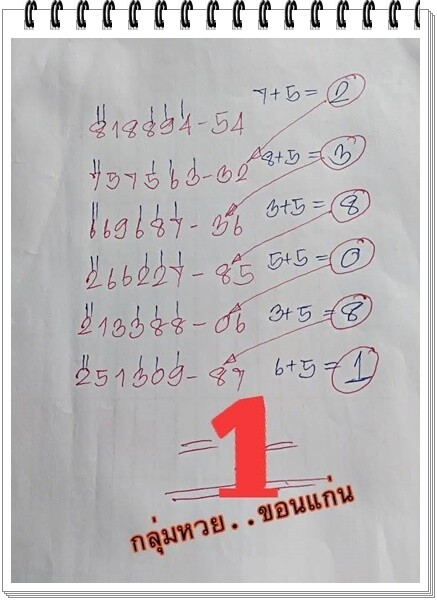 7+5=2
818894-54
757563-32 8+5=3
669687-36 3+5=8
266227-85 5+5=0
213388-06 3+5=8
251309-87 6+5=1
1
กลุ่มหวย..ขอนแก่น